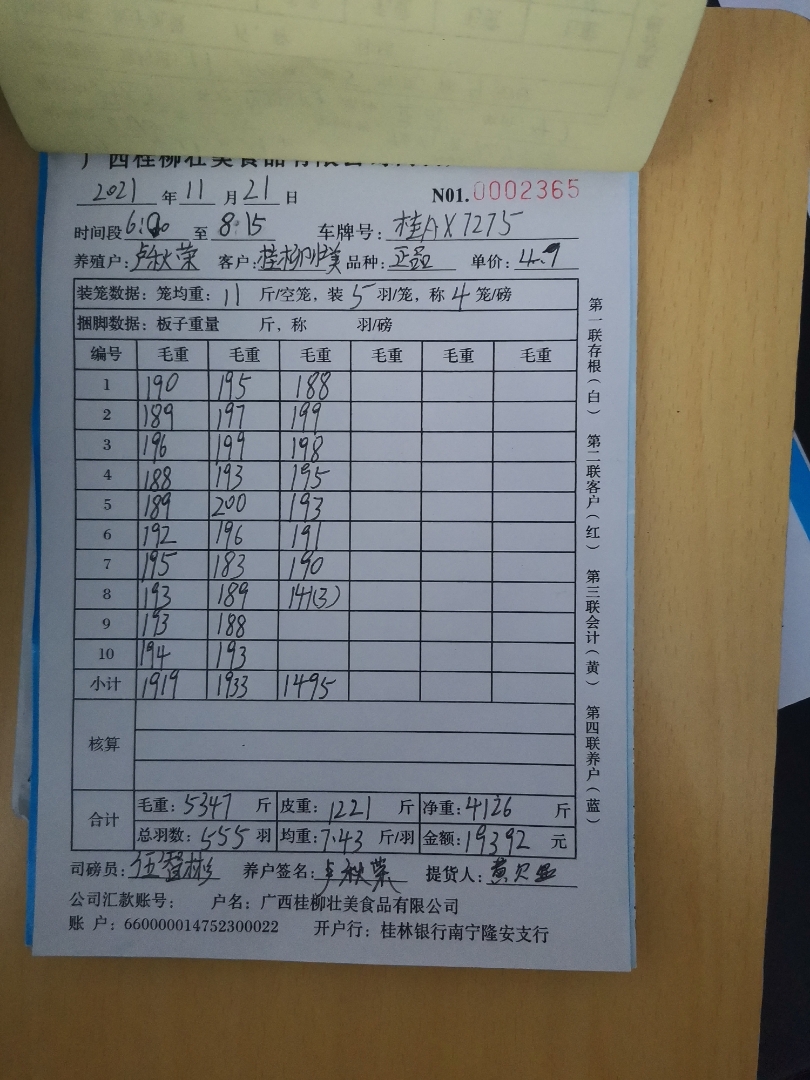 广西桂柳壮美食品有限公司
2021 年 11 月 21 日 N01.0002365
时间段 6:00 至 8:15 车牌号: 桂AX7275
养殖户: 卢秋荣 客户: 桂柳壮美 品种: 正品 单价: 4.7
装笼数据: 笼均重: 11 斤/空笼, 装 5 羽/笼, 称 4 笼/磅
捆脚数据: 板子重量 斤, 称 羽/磅
编号 毛重 毛重 毛重 毛重 毛重 毛重
1 190 195 188
2 189 197 199
3 196 199 198
4 188 193 195
5 189 200 193
6 192 196 191
7 195 183 190
8 193 189 141(3)
9 193 188
10 194 193
小计 1919 1933 1495
核算
合计 毛重: 5347 斤 皮重: 1221 斤 净重: 4126 斤
总羽数: 555 羽 均重: 7.43 斤/羽 金额: 19392 元
司磅员: 伍智彬 养户签名: 卢秋荣 提货人:
公司汇款账号: 户名: 广西桂柳壮美食品有限公司
账 户: 660000014752300022 开户行: 桂林银行南宁隆安支行
第一联存根(白) 第二联客户(红) 第三联会计(黄) 第四联养户(蓝)